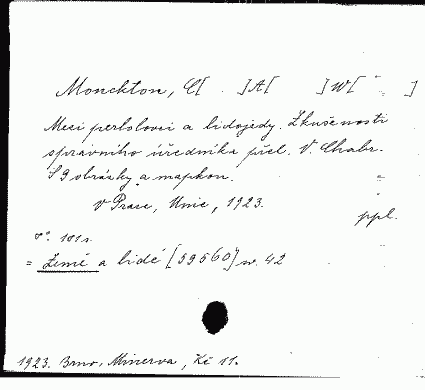 Monckton, C[ ]A[ ]W[ ]
Mezi perlolovci a lidojedy. Zkušenosti
správního úředníka přel. V. Chabr.
S 9 obrázky a mapkou.
V Praze, Unie, 1923.
ppl.
8°. 181 s.
= Země a lidé [59560] sv. 42
1923. Brno, Minerva, Kč 11.